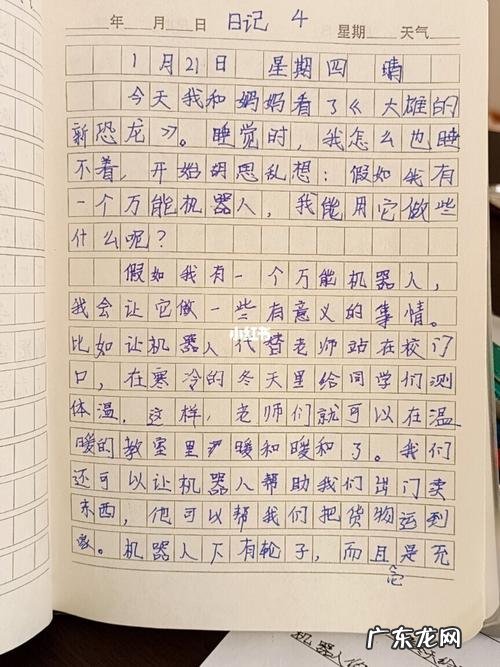 年 月 日 日记 4 星期 天气
1月21日 星期四 晴
今天我和妈妈看了《大雄的
新恐龙》。睡觉时，我怎么也睡
不着，开始胡思乱想：假如我有
一个万能机器人，我能用它做些
什么呢？
假如我有一个万能机器人，
我会让它做一些有意义的事情。
小红书
比如让机器人代替老师站在校门
口，在寒冷的冬天里给同学们测
体温，这样，老师们就可以在温
暖的教室里暖和暖和了。我们
还可以让机器人帮助我们出门卖
东西，他可以帮我们把货物运到
家。机器人下有轮子，而且是充
它
机器人
广东龙网